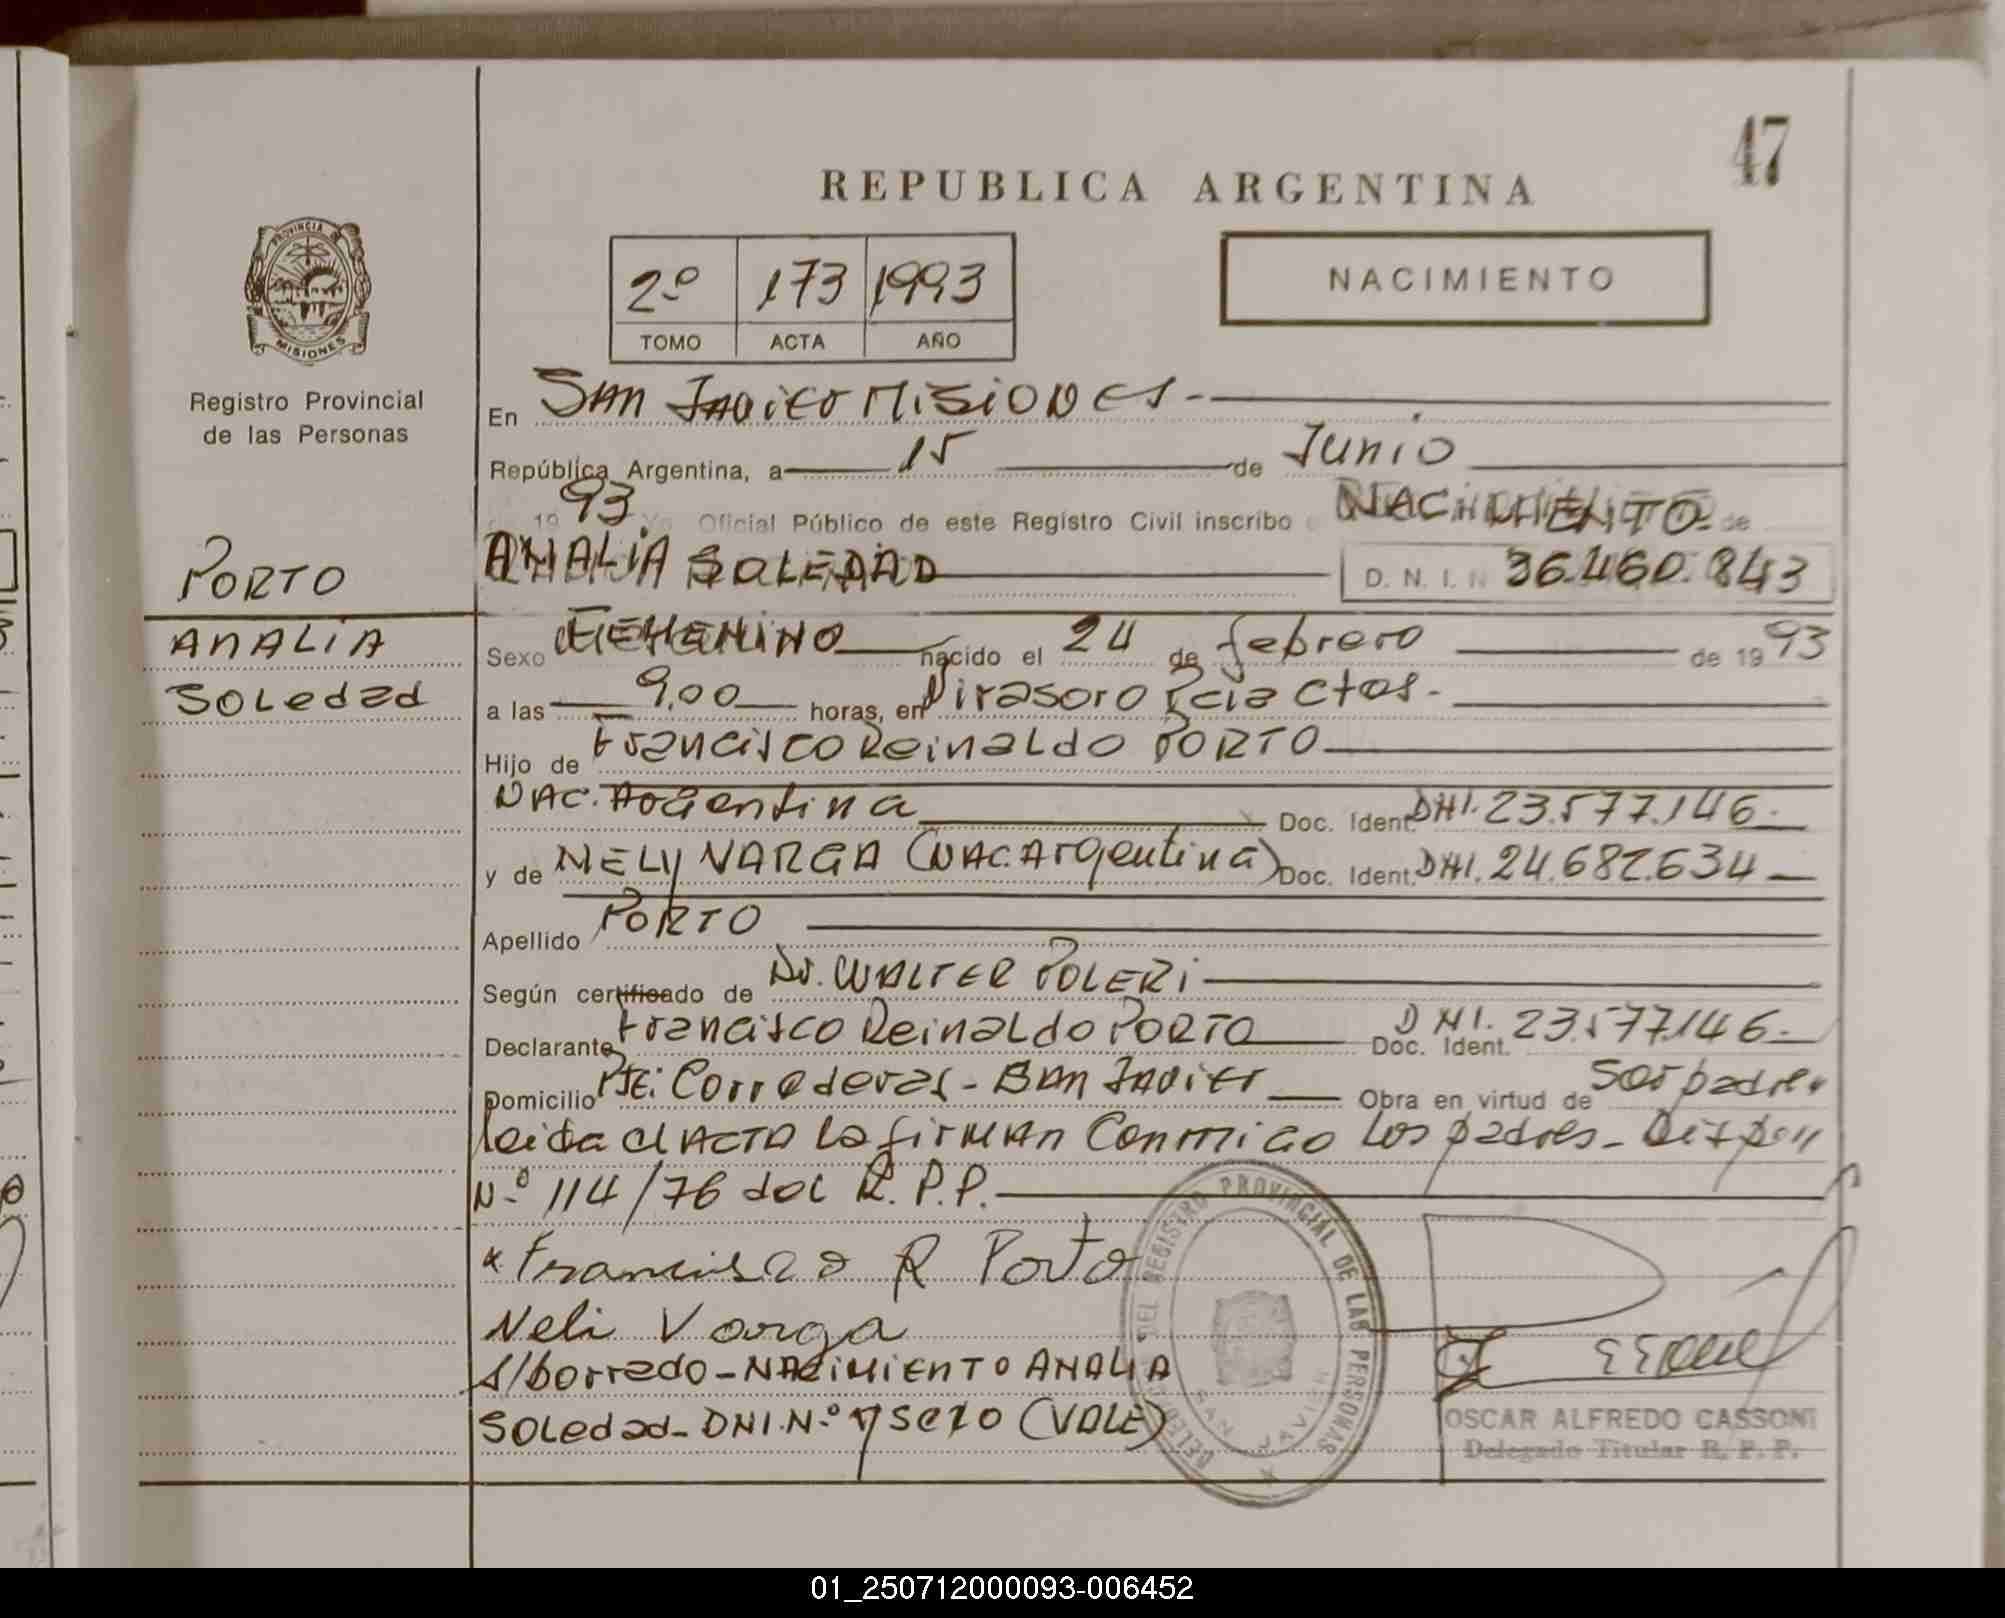 47
REPUBLICA ARGENTINA
2º 173 1993
TOMO ACTA AÑO
NACIMIENTO
PROVINCIA DE
MISIONES
Registro Provincial
de las Personas
PORTO
ANALIA
SOLedad
En SAN JAVIER MISIONES
República Argentina, a 15 de Junio
1993 Yo Oficial Público de este Registro Civil inscribo NACIMIENTO de
ANALIA SOLEDAD D. N. I. N 36.460.843
Sexo FEMENINO nacido el 24 de febrero de 1993
a las 9,00 horas, en Virasoro Pcia Ctes.
Hijo de Francisco Reinaldo PORTO
NAC. Argentina Doc. Ident. DNI. 23.577.146.
y de NELY VARGA (NAC. Argentina) Doc. Ident. DNI. 24.682.634
Apellido PORTO
Según certificado de Dr. WALTER POLERI
Declarante Francisco Reinaldo PORTO Doc. Ident. DNI. 23.577.146.
Domicilio Pje: Correderas - SAN JAVIER Obra en virtud de Ser padre.
leida el ACTA la firman Conmigo los padres - Disp
N.º 114/76 del R.P.P.
x Francisco R Porto
Neli Varga
S/borrado - NACIMIENTO ANALIA
SOLedad - DNI.N.º y sexo (VALE)
DELEGACION DEL REGISTRO PROVINCIAL DE LAS PERSONAS
SAN JAVIER
OSCAR ALFREDO CASSONI
Delegado Titular R. P. P.
01_250712000093-006452